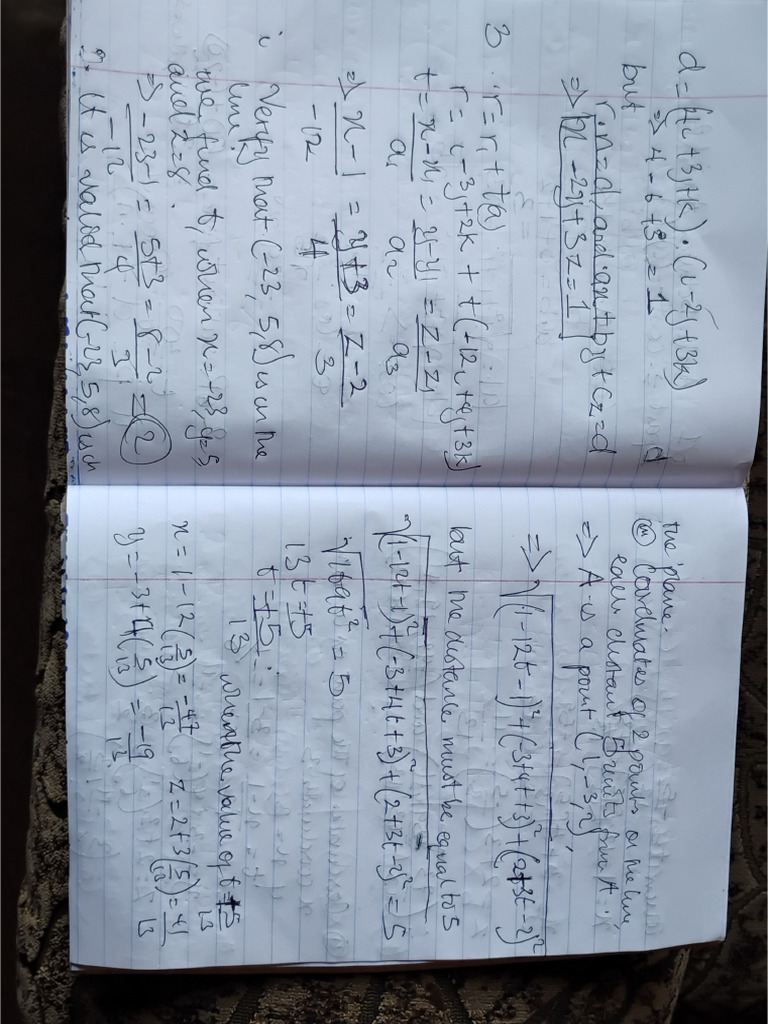 d = (4i + 3j + k) · (i - 2j + 3k)
⇒ 4 - 6 + 3 = 1
but
r.n = d, and ax + by + cz = d
⇒ x - 2y + 3z = 1
3. r = r₁ + t(a)
r = i - 3j + 2k + t(-12i + 4j + 3k)
t = x - x₁/a₁ = y - y₁/a₂ = z - z₁/a₃
⇒ x - 1/-12 = y + 3/4 = z - 2/3
i Verify that (-23, 5, 8) is on the
line.
we find t, when x = -23, y = 5
and z = 8.
⇒ -23-1/-12 = 5+3/4 = 8-2/3 = 2
∴ It is valid that (-23, 5, 8) is on
the plane.
(ii) Coordinates of 2 points on the line,
each distant 5 units from A.
⇒ A is a point (1, -3, 2),
⇒ √(1 - 12t - 1)² + (-3 + 4t + 3)² + (2 + 3t - 2)²
but the distance must be equal to 5
√(1 - 12t - 1)² + (-3 + 4t + 3)² + (2 + 3t - 2)² = 5
√169t² = 5
13t = ±5
t = ±5/13
when the value of t = +5/13
x = 1 - 12(5/13) = -47/13 z = 2 + 3(5/13) = 41/13
y = -3 + 4(5/13) = -19/13